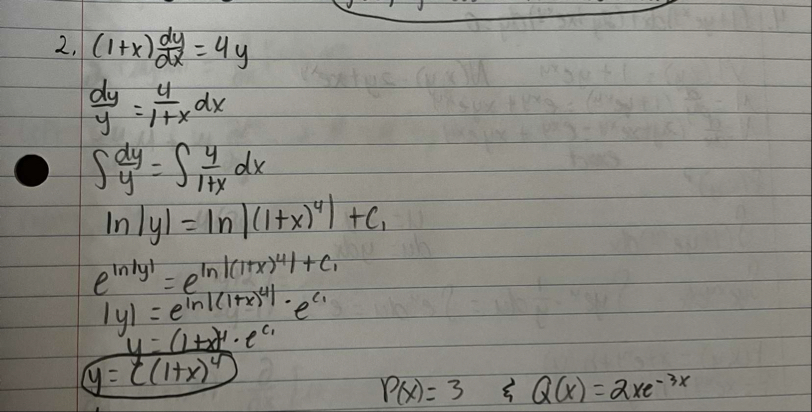 2. (1+x) dy/dx = 4y
dy/y = 4/1+x dx
∫ dy/y = ∫ 4/1+x dx
ln|y| = ln|(1+x)^4| + C₁
e^ln|y| = e^ln|(1+x)^4| + C₁
|y| = e^ln|(1+x)^4| · e^C₁
y = (1+x)^4 · e^C₁
y = C(1+x)^4
P(x) = 3 & Q(x) = 2xe^-3x